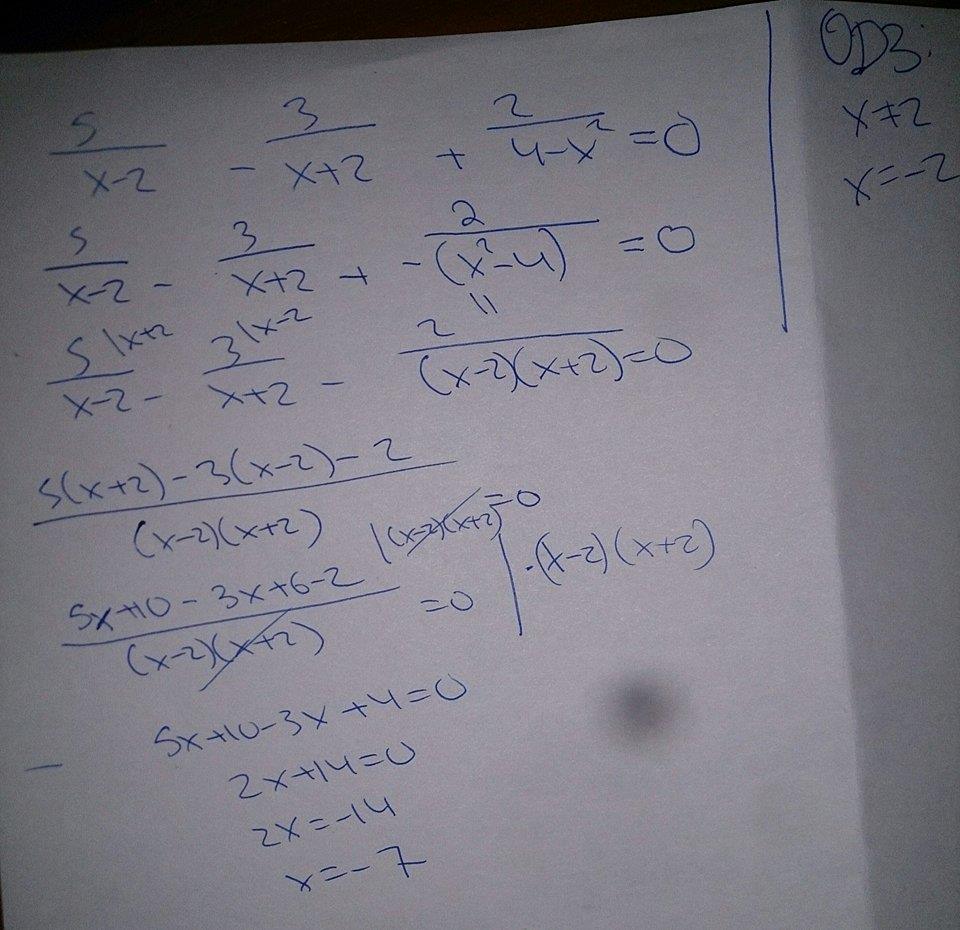 5/(x-2) - 3/(x+2) + 2/(4-x²) = 0
5/(x-2) - 3/(x+2) + 2/-(x²-4) = 0
||
5|x+2/(x-2) - 3|x-2/(x+2) - 2/(x-2)(x+2) = 0
5(x+2)-3(x-2)-2/(x-2)(x+2) = 0 |(x-2)(x+2)
5x+10-3x+6-2/(x-2)(x+2) = 0 | ·(x-2)(x+2)
5x+10-3x+4=0
2x+14=0
2x=-14
x=-7
ODZ:
x≠2
x=-2